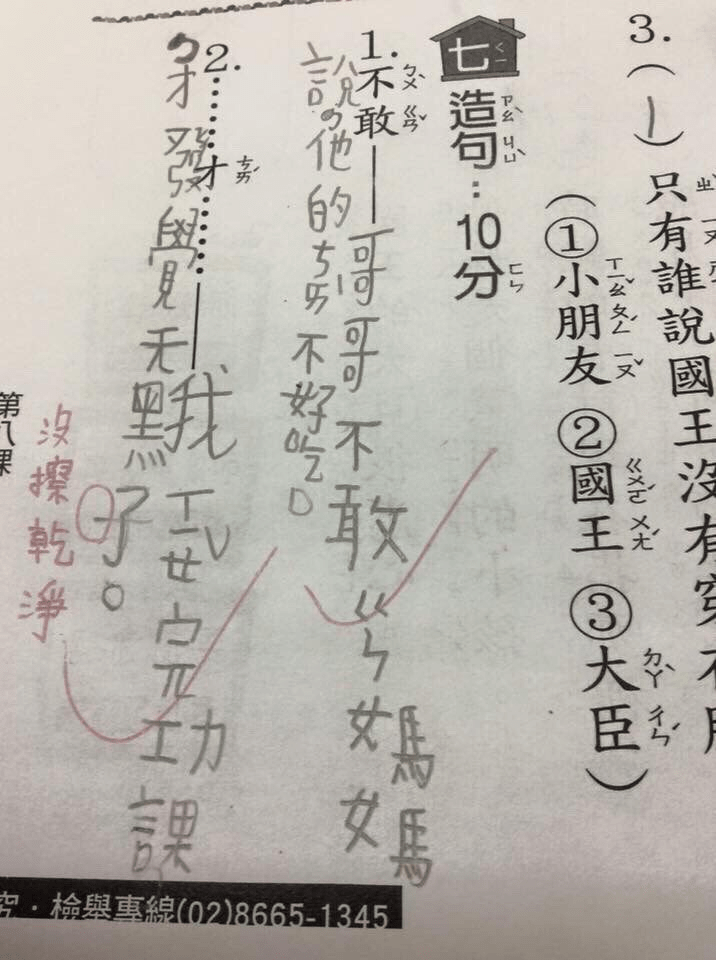 3.（1）只有誰說國王沒有穿
（①小朋友 ②國王 ③大臣）
七 造句：10分
1.不敢——哥哥不敢ㄍㄣ媽媽
說他的ㄘㄞ不好吃。
2.……才……——我ㄒㄧㄝˇ完功課
才發覺天黑了。
沒擦乾淨
第八課
究‧檢舉專線(02)8665-1345